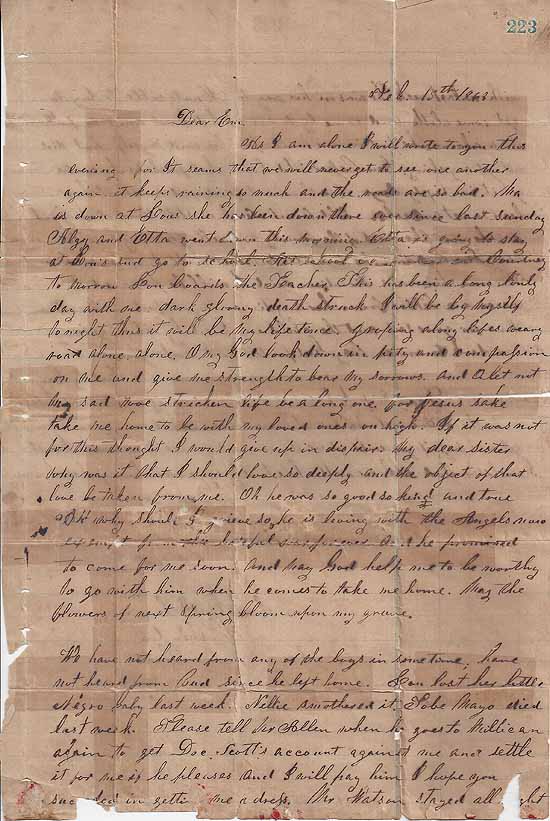 223
Feb. 15th 1863
Dear Em
As I am alone I will write to you this
evening for It seams that we will never get to see one another
again it keeps raining so much and the roads are so bad. Ma
is down at Lous she has been down there ever since last sunday
and Etta went down this morning Etta is going to stay
at Lou's and go to school
to morrow Lou boards the Teacher. This has been a long lonly
day with me dark gloomy death struck I will be by myself
to night thus it will be my life time groping along lifes weary
road alone alone. O my God look down in pity and compassion
on me and give me strength to bear my sorrows. and O let not
my sad woe stricken life be a long one for Jesus sake
take me home to be with my loved ones on high. If it was not
for this thought I would give up in dispair. My dear sister
why was it that I should love so deeply and the object of that
love be taken from me. Oh he was so good so kind and true
Oh why should I grieve so, he is living with the Angels now
And he promised
to come for me soon. and may God help me to be worthy
to go with him when he comes to take me home. May the
flowers of next Spring bloom upon my grave.
We have not heard from any of the boys in some time, have
not heard from Bud since he left home. Lou lost her little
Negro baby last week. Nellie smothered it, Tobe Mayo died
last week. Please tell Mr Allen when he goes to Millican
again to get Doc Scott's account against me and settle
it for me if he pleases and I will pay him I hope you
succeded in getting me a dress. Mr Watson stayed all night